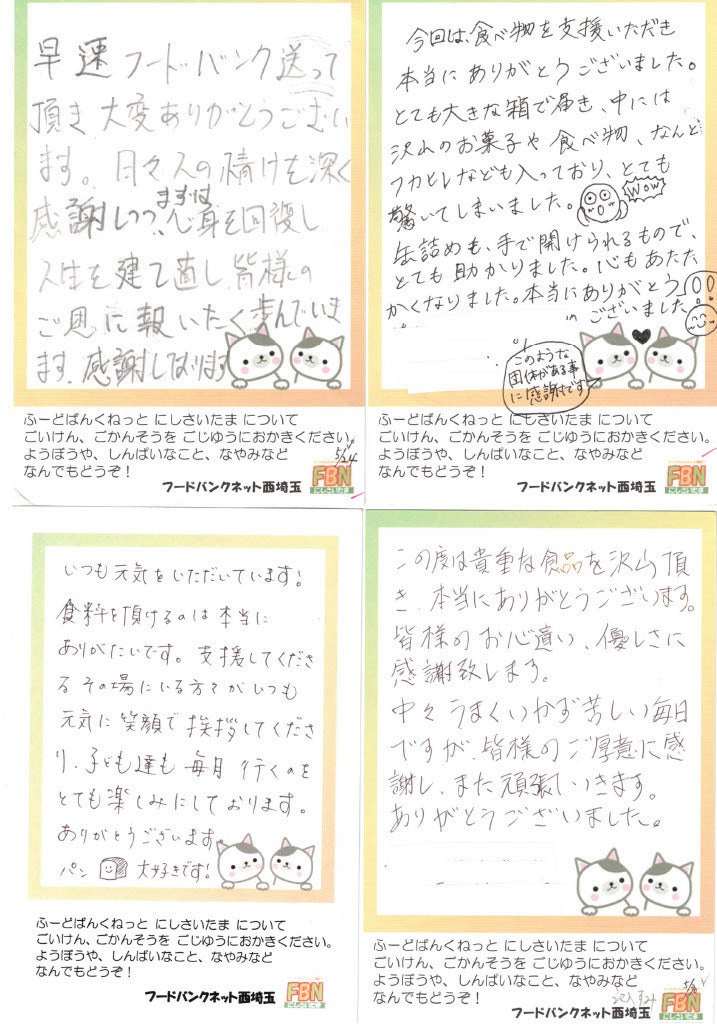 早速フードバンク送って
頂き大変ありがとうござい
ます。日々人の情けを深く
感謝しつつ、まずは心身を回復し
人生を建て直し皆様の
ご恩に報いたく歩んでいき
ます。感謝しております
ふーどばんくねっと にしさいたま について
ごいけん、ごかんそうを ごじゆうにおかきください。
ようぼうや、しんぱいなこと、なやみなど
なんでもどうぞ!
5/24
フードバンクネット西埼玉
FBN
にしさいたま
今回は、食べ物を支援いただき
本当にありがとうございました。
とても大きな箱で届き、中には
沢山のお菓子や食べ物、なんと
フカヒレなども入っており、とても
驚いてしまいました。
Wow
缶詰めも、手で開けられるもので、
とても助かりました。心もあたた
かくなりました。本当にありがとう
ございました!
このような
団体がある事
に感謝です
ふーどばんくねっと にしさいたま について
ごいけん、ごかんそうを ごじゆうにおかきください。
ようぼうや、しんぱいなこと、なやみなど
なんでもどうぞ!
フードバンクネット西埼玉
FBN
にしさいたま
いつも元気をいただいています!
食料を頂けるのは本当に
ありがたいです。支援してくださ
るその場にいる方々がいつも
元気に笑顔で挨拶してくださ
り、子ども達も毎月行くのを
とても楽しみにしております。
ありがとうございます。
パン 大好きです!
ふーどばんくねっと にしさいたま について
ごいけん、ごかんそうを ごじゆうにおかきください。
ようぼうや、しんぱいなこと、なやみなど
なんでもどうぞ!
フードバンクネット西埼玉
FBN
にしさいたま
この度は貴重な食品を沢山頂
き、本当にありがとうございます。
皆様のお心遣い、優しさに
感謝致します。
中々うまくいかず苦しい毎日
ですが、皆様のご厚意に感
謝し、また頑張っていきます。
ありがとうございました。
ふーどばんくねっと にしさいたま について
ごいけん、ごかんそうを ごじゆうにおかきください。
ようぼうや、しんぱいなこと、なやみなど
なんでもどうぞ!
フードバンクネット西埼玉
FBN
にしさいたま